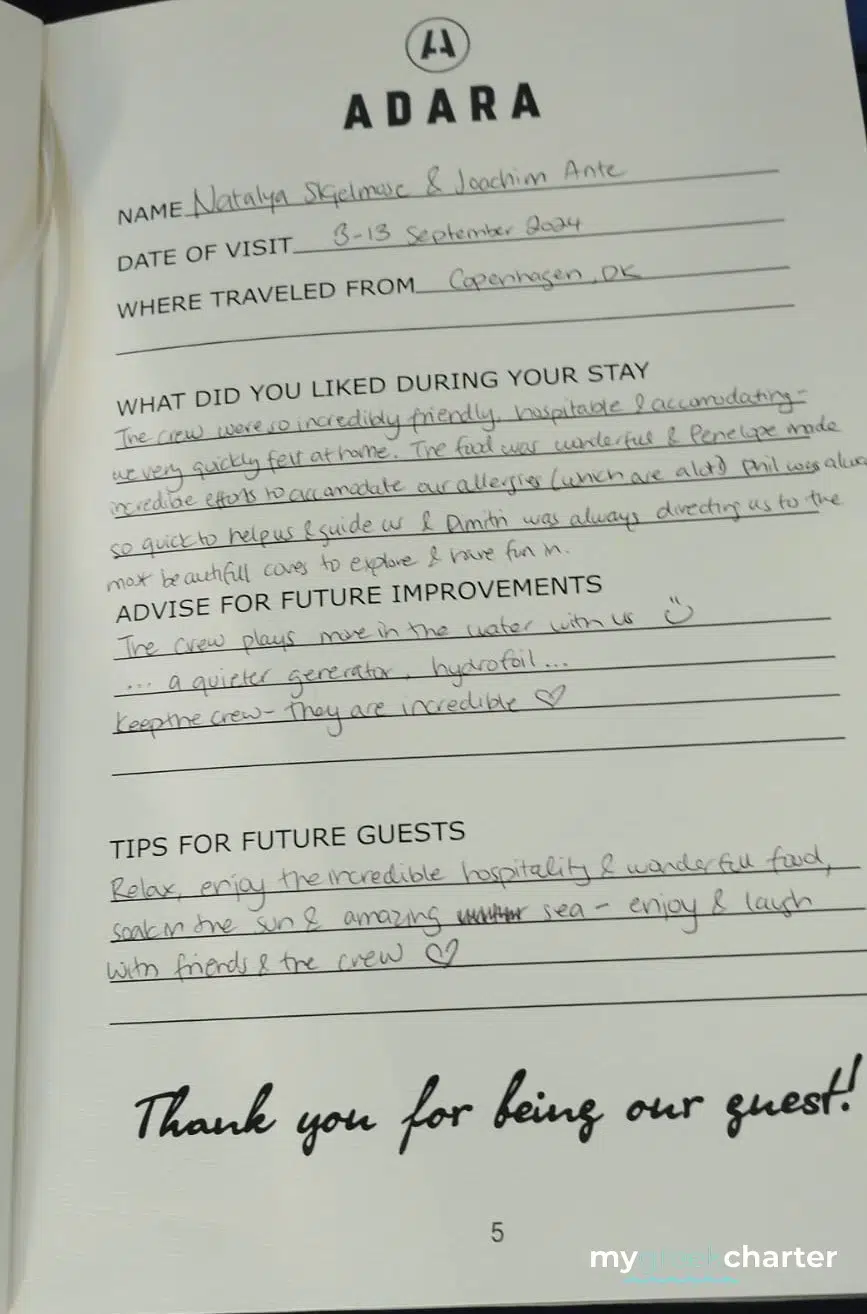 ADARA
NAME Natalya Skjelmose & Joachim Ante
DATE OF VISIT 3-13 September 2024
WHERE TRAVELED FROM Copenhagen, DK
WHAT DID YOU LIKED DURING YOUR STAY
The crew were so incredibly friendly, hospitable & accomodating -
we very quickly felt at home. The food was wonderful & Penelope made
incredible efforts to accamodate our allergies (which are alot!) Phil was
so quick to help us & guide us & Dimitri was always directing us to the
most beautifull coves to explore & have fun in.
ADVISE FOR FUTURE IMPROVEMENTS
The crew plays more in the water with us
... a quieter generator, hydrofoil...
Keep the crew - They are incredible ♡
TIPS FOR FUTURE GUESTS
Relax, enjoy the incredible hospitality & wonderfull food,
soak in the sun & amazing sea - enjoy & laugh
with friends & the crew ♡
Thank you for being our guest!
5
mygreekcharter